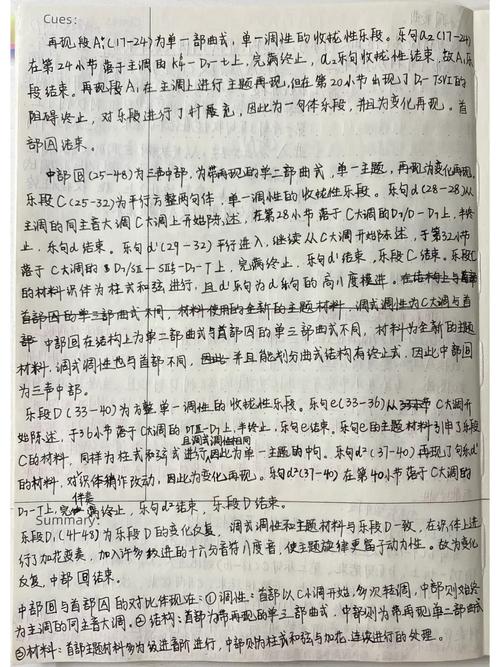 Cues:
再现段A₁(17-24)为单一部曲式,单一调性的收拢性乐段。乐句a₂(17-24)
在第24小节落于主调的K⁶₄-D₇-t上,完满终止,a₂乐句收拢性结束,故A₁乐
段结束。再现段A₁在主调上进行主题再现,但在第20小节出现了D₇-TSVI的
阻碍终止,对乐段进行了扩充,因此为一句体乐段,并且为变化再现。首
部A结束。
中部B(25-48)为三声中部,为带再现的单二部曲式,单一主题,再现为变化再现。
乐段C(25-32)为平行方整两句体,单一调性的收拢性乐段。乐句d(28-28)从
主调的同主音大调C大调上开始陈述,在第28小节落于C大调的D₇/D-D₇上,半终
止,乐句d结束。乐句d'(29-32)平行进入,继续从C大调开始陈述,于第32小节
落于C大调的D₇/SII-SII₆-D₇-T上,完满终止,乐句d'结束,乐段C结束。乐段C
的材料织体为柱式和弦进行,且d'乐句为d乐句的高八度模进。在结构上与首部
首部A的单三部曲式不同,材料使用的全新的主题材料,调式调性为C大调与首
部 中部B在结构上为单二部曲式与首部A的单三部曲式不同,材料为全新的主题
材料,调式调性也与首部不同,因此并且能划分曲式结构有终止式,因此中部B
为三声中部。
乐段D(33-40)为方整单一调性的收拢性乐段。乐句e(33-36)从33小节C大调开
始陈述,于36小节落于C大调的D₇上,半终止,乐句e结束。乐句e的主题材料引申了乐段
且调式调性相同
C的材料,同样为柱式和弦式进行,因此为单一主题的中句。乐句d²(37-40)再现了句乐d'
的材料,对织体稍作改动,因此为变化再现。乐句d²(37-40)在第40小节落于C大调的
伴奏
D₇-T上,完满终止,乐句d²结束,乐段D结束。
Summary:
乐段D₁(41-48)为乐段D的变化反复,调式调性和主题材料与乐段D一致,在织体上进
行了加花变奏,加入许多级进的十六分音符八度音,使主题旋律更富于动力性。故为变化
反复,中部B结束。
中部B与首部A的对比体现在:①调性:首部以C小调开始,多次转调,中部则始终
为主调的同主音大调。②结构:首部为带再现的单三部曲式,中部则为带再现单二部曲式
③材料:首部主题材料多为级进音阶进行,中部则为柱式和弦与加花、连续进行的处理。